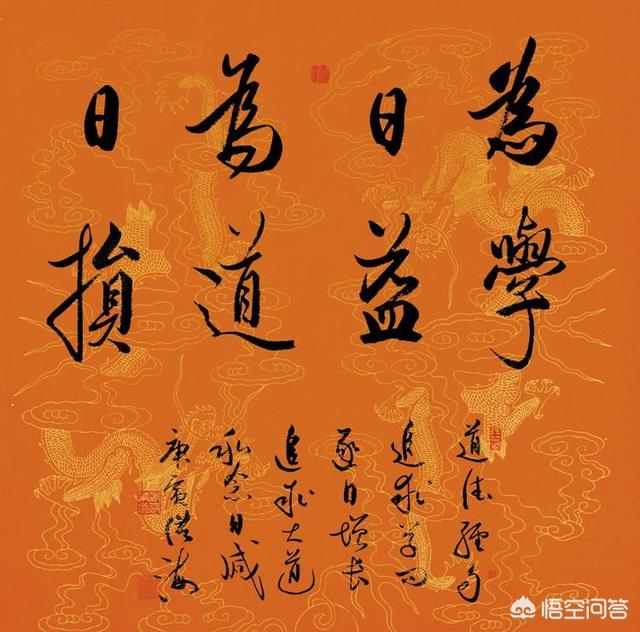 為學
日益
為道
日損
道德經句
追求学习
逐日增长
追求大道
私念日減
庚寅
悟空问答